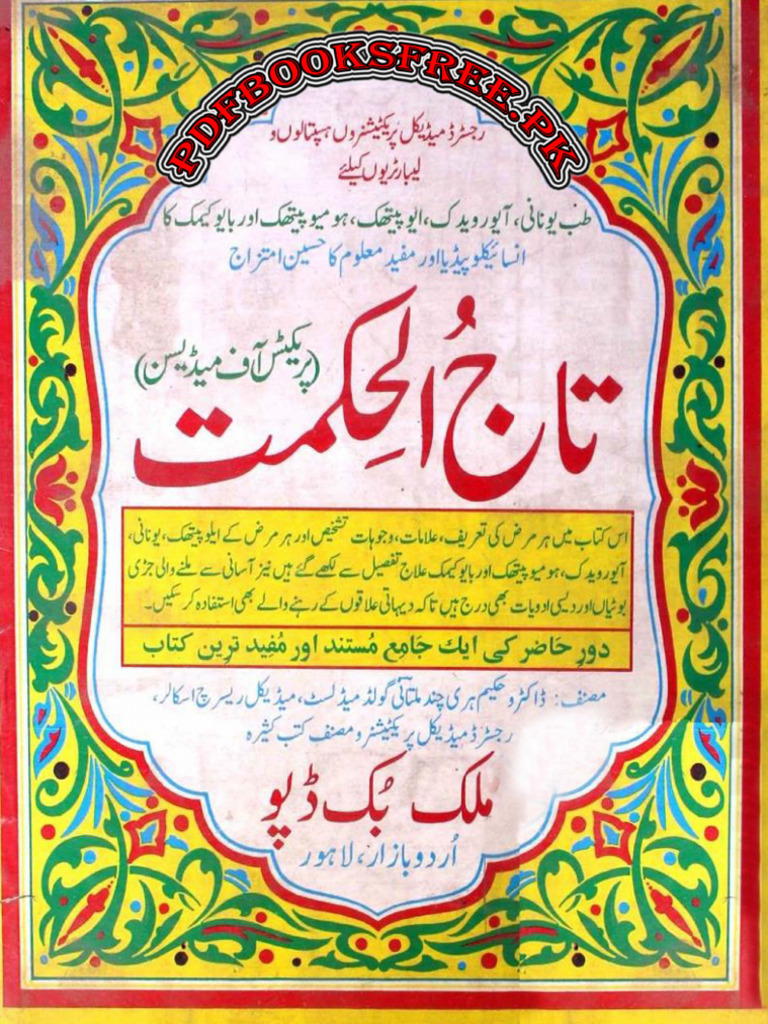 PDFBOOKSFREE.PK
رجسٹرڈ میڈیکل پریکٹیشنروں ہسپتالوں و
لیبارٹریوں کیلئے
طب یونانی، آیورویدک، ایوپیتھک، ہومیوپیتھک اور بایوکیمک کا
انسائیکلوپیڈیا اور مفید معلوم کا حسین امتزاج
تاجُ الحِکمت
(پریکٹس آف میڈیسن)
اس کتاب میں ہر مرض کی تعریف، علامات، وجوہات تشخیص اور ہر مرض کے ایلوپیتھک، یونانی،
آیورویدک، ہومیوپیتھک اور بایوکیمک علاج تفصیل سے لکھے گئے ہیں نیز آسانی سے ملنے والی جڑی
بوٹیاں اور دیسی ادویات بھی درج ہیں تاکہ دیہاتی علاقوں کے رہنے والے بھی استفادہ کر سکیں۔
دورِ حاضر کی ایک جامع مُستند اور مُفید ترین کتاب
مصنف: ڈاکٹر و حکیم ہری چند ملتانی گولڈ میڈلسٹ، میڈیکل ریسرچ اسکالر،
رجسٹرڈ میڈیکل پریکٹیشنر و مصنف کتب کثیرہ
ملک بُک ڈپو
اُردو بازار، لاہور